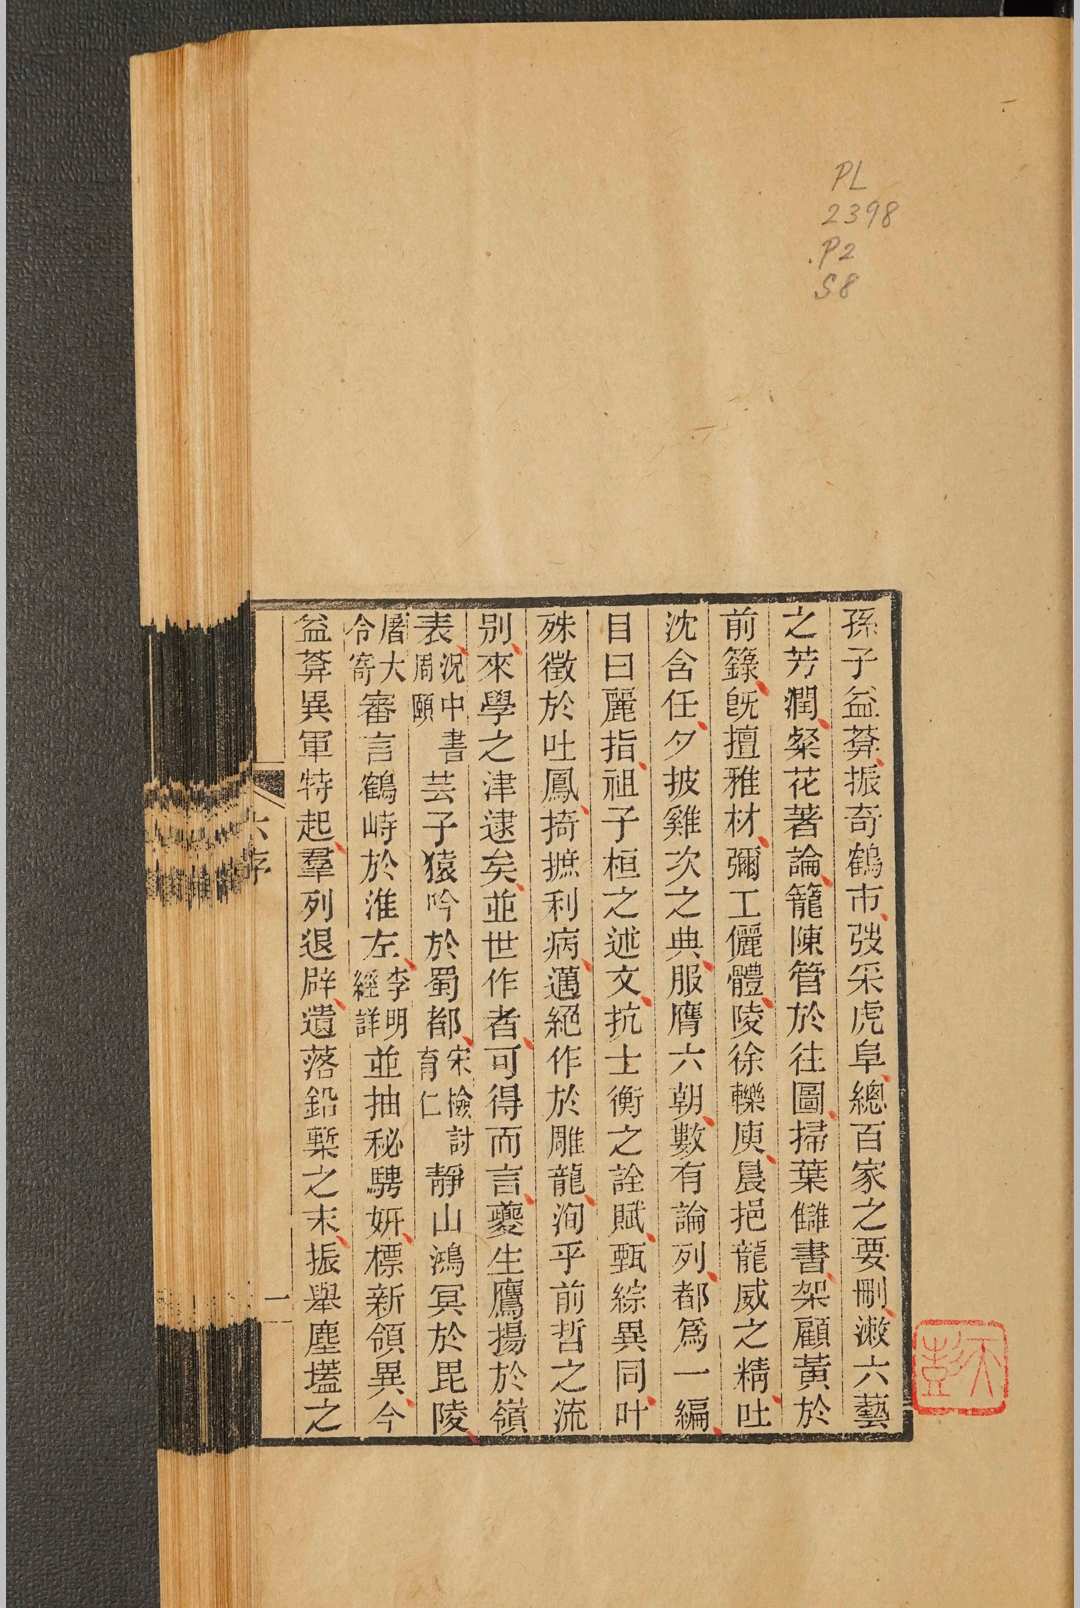 PL
2398
.P2
S8
孫子益葊振奇鶴市弢采虎阜總百家之要刪漱六藝
之芳潤粲花著論籠陳管於往圖掃葉讎書架顧黃於
前籙旣擅雅材彌工儷體陵徐轢庾晨挹龍威之精吐
沈含任夕披雞次之典服膺六朝數有論列都爲一編
目曰麗指祖子桓之述文抗士衡之詮賦甄綜異同叶
殊徵於吐鳳掎摭利病邁絕作於雕龍洵乎前哲之流
別來學之津逮矣並世作者可得而言夔生鷹揚於嶺
表況中書周頤芸子猿吟於蜀都宋檢討育仁靜山鴻冥於毘陵
屠大令寄審言鶴峙於淮左李明經詳並抽秘騁妍標新領異今
益葊異軍特起羣列退辟遺落鉛槧之末振舉塵壒之
六序
一